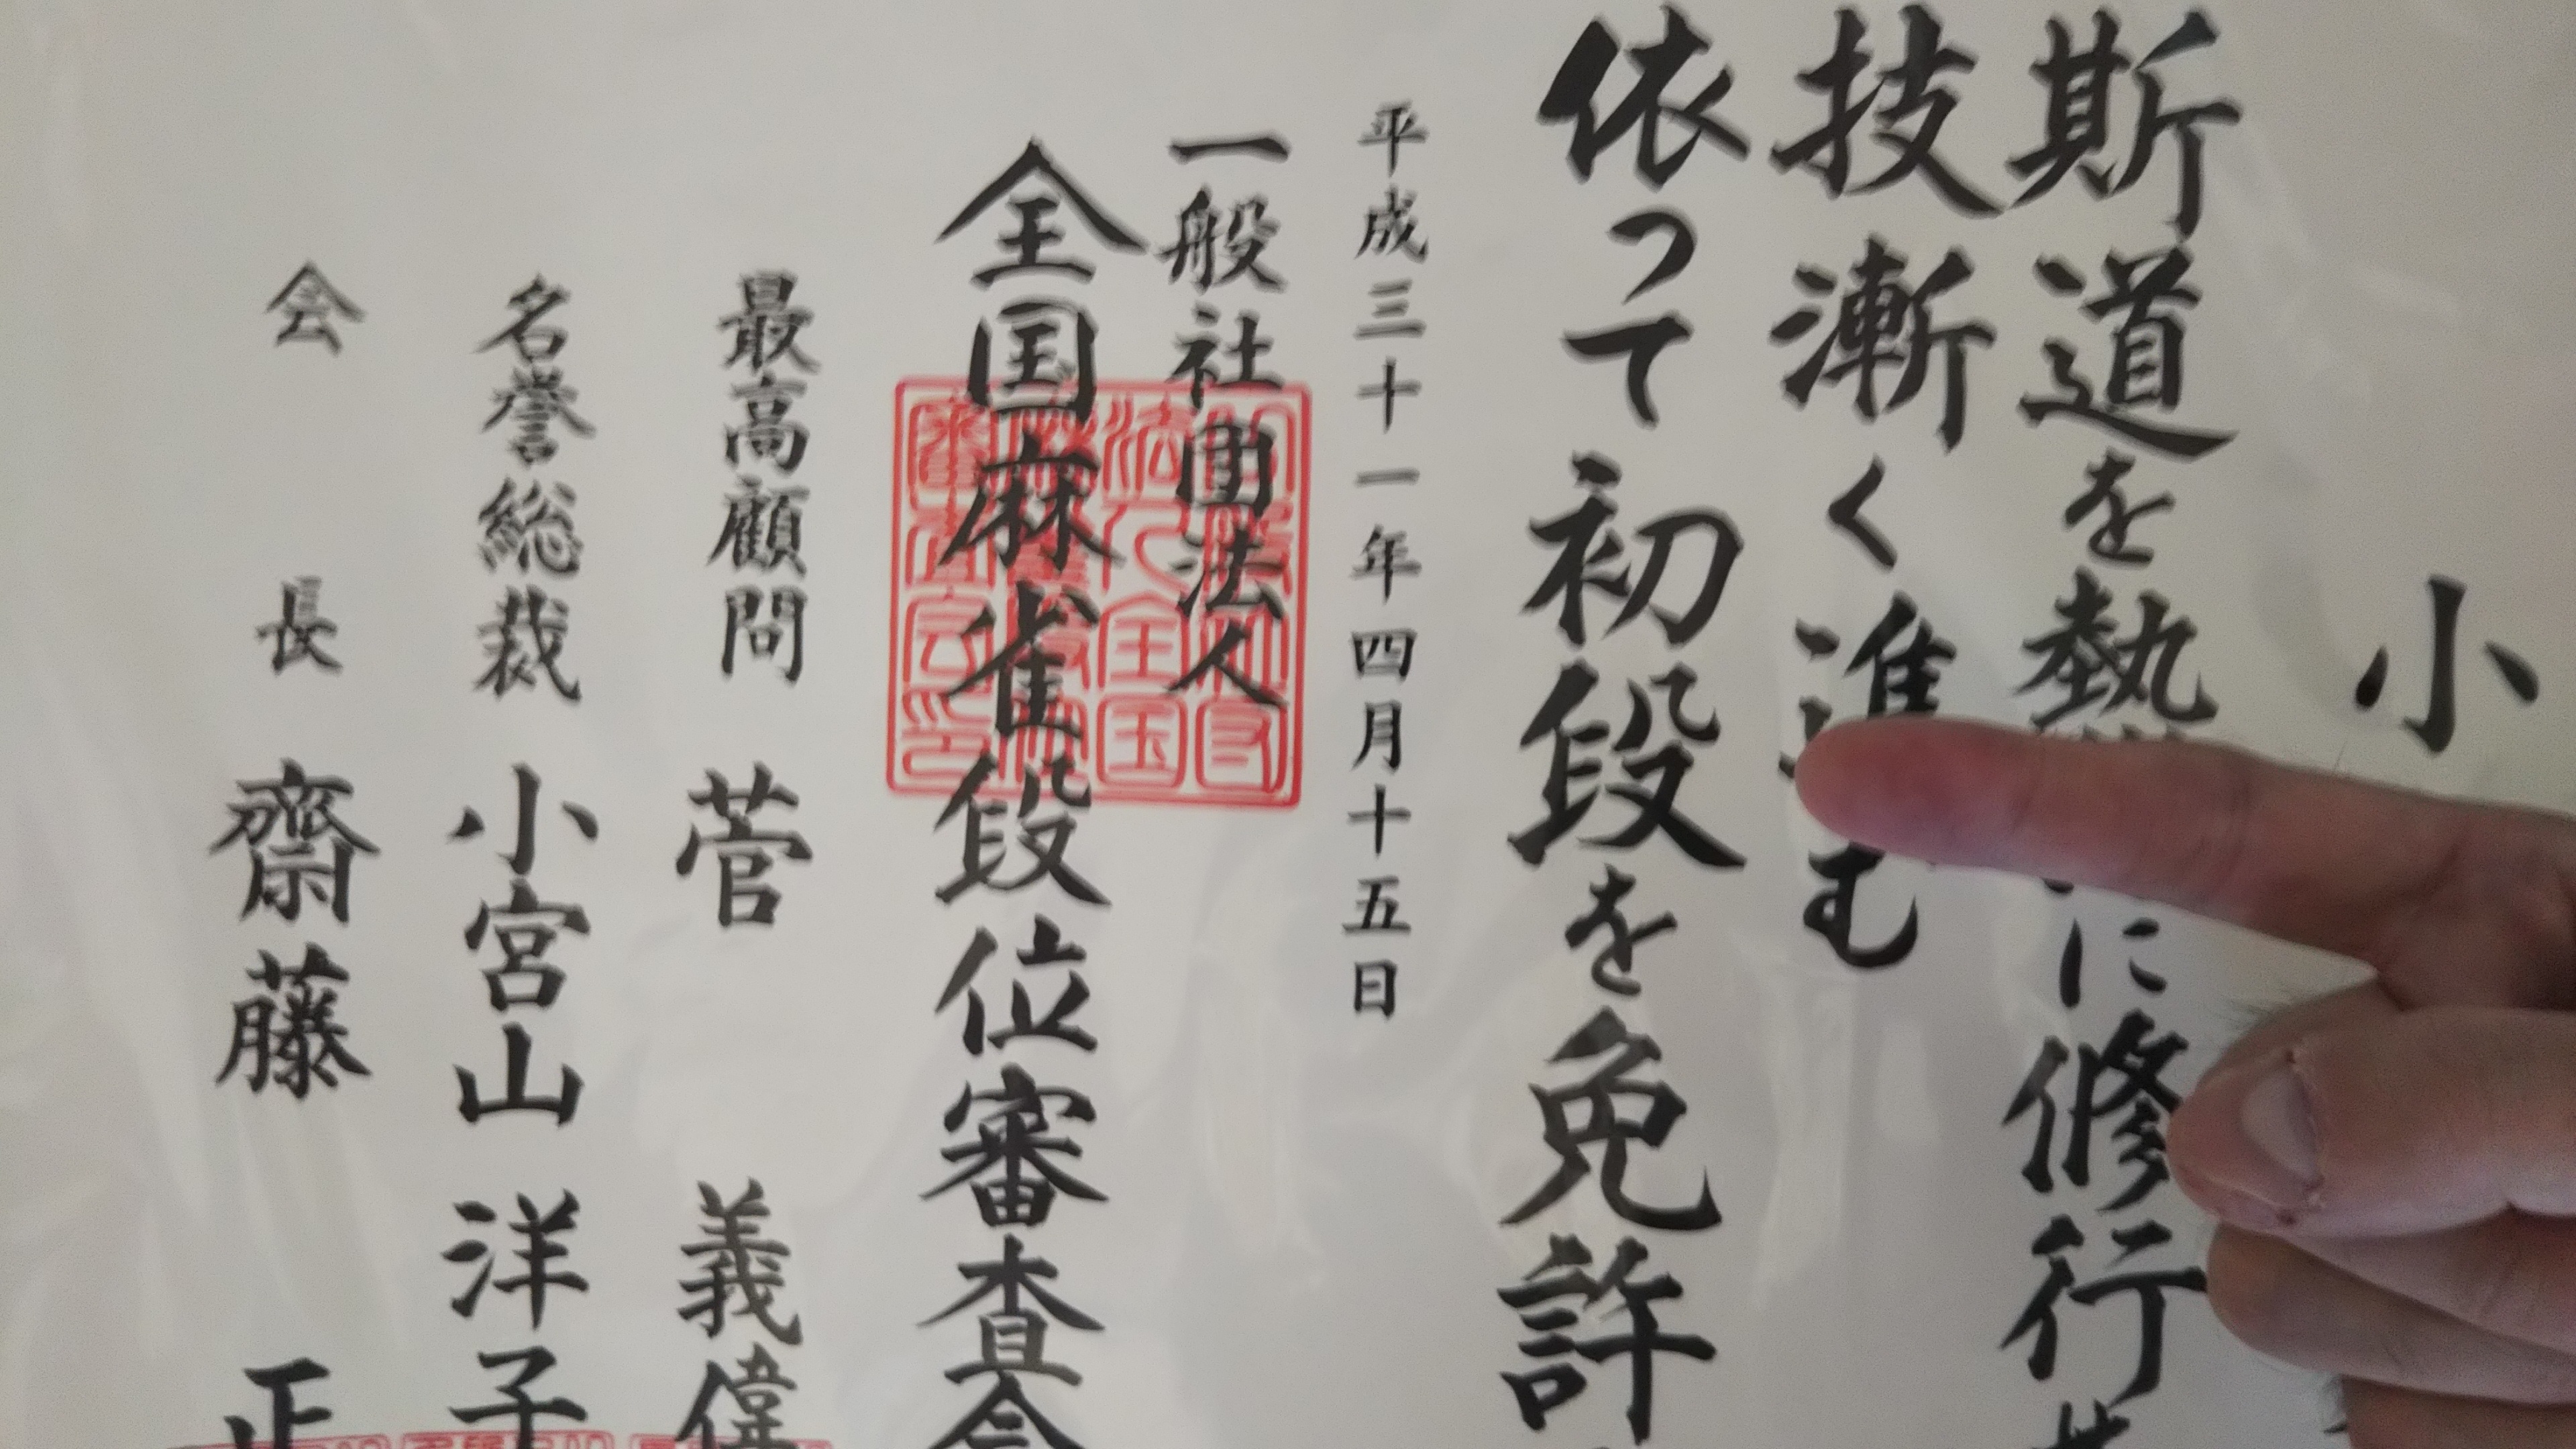 小
斯道を熱に修行
技漸く進む
依って初段を免許
平成三十一年四月十五日
一般社團法人
全国麻雀段位審査会
最高顧問 菅 義偉
名誉総裁 小宮山 洋子
会長 齋藤 正